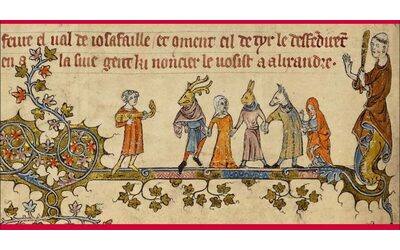 feure el val de iosafaille / et coment cil de tyr le desfedirēt
en a la siue gent lu noncier le vosist a alixandre.